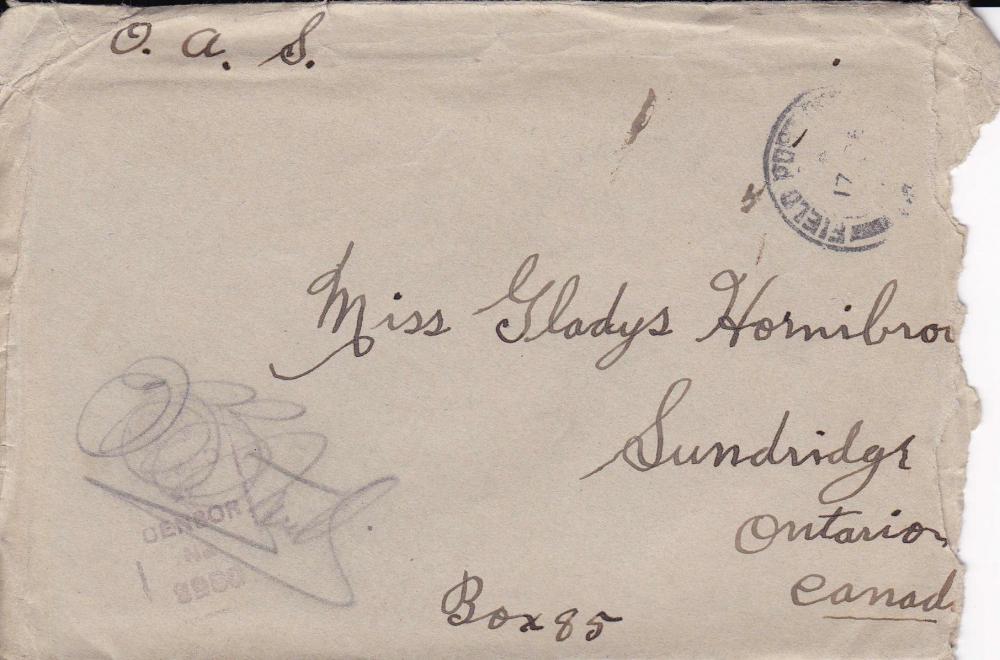 O. A. S.
FIELD POST
17
Miss Gladys Hornibroo
Sundridge
Ontario
Canad
Box 85
CENSOR
No